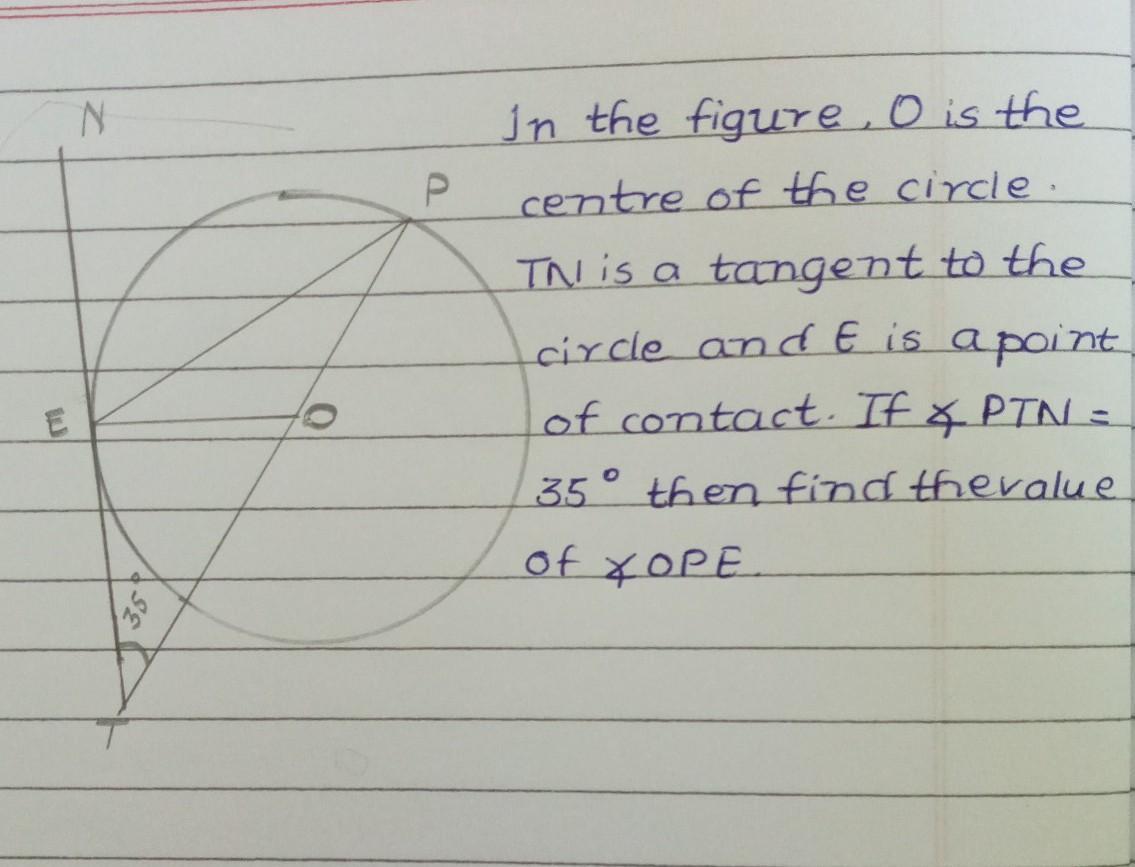 N
In the figure, O is the
P
centre of the circle.
TN is a tangent to the
circle and E is a point
E
O
of contact. If ∡ PTN =
35° then find the value
of ∡OPE.
35°
T